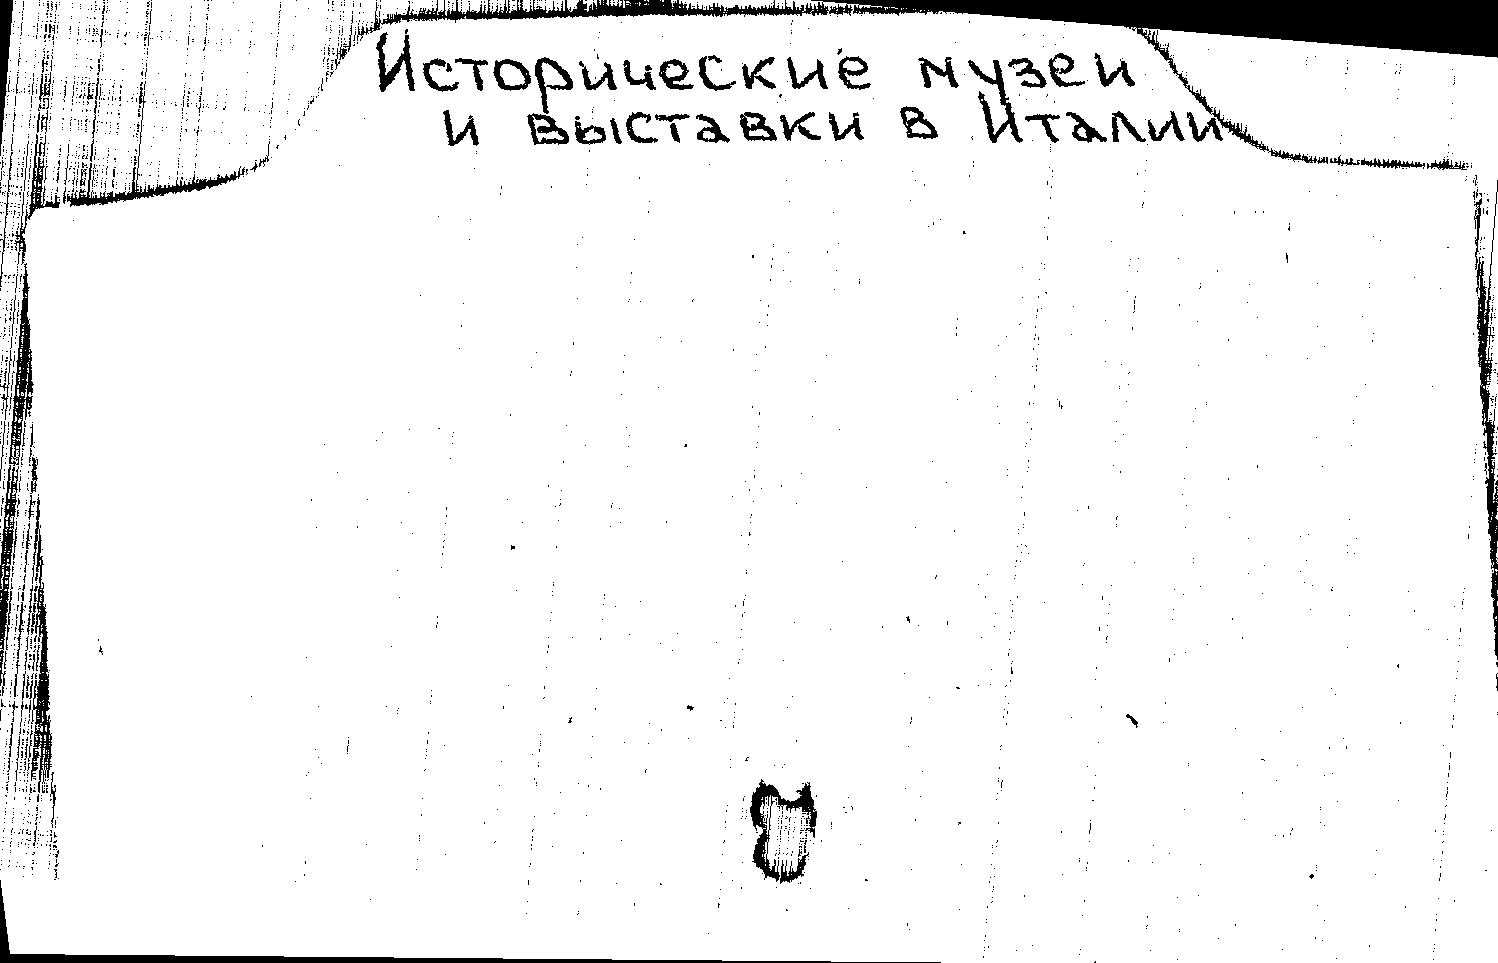 Исторические музеи
и выставки в Италии